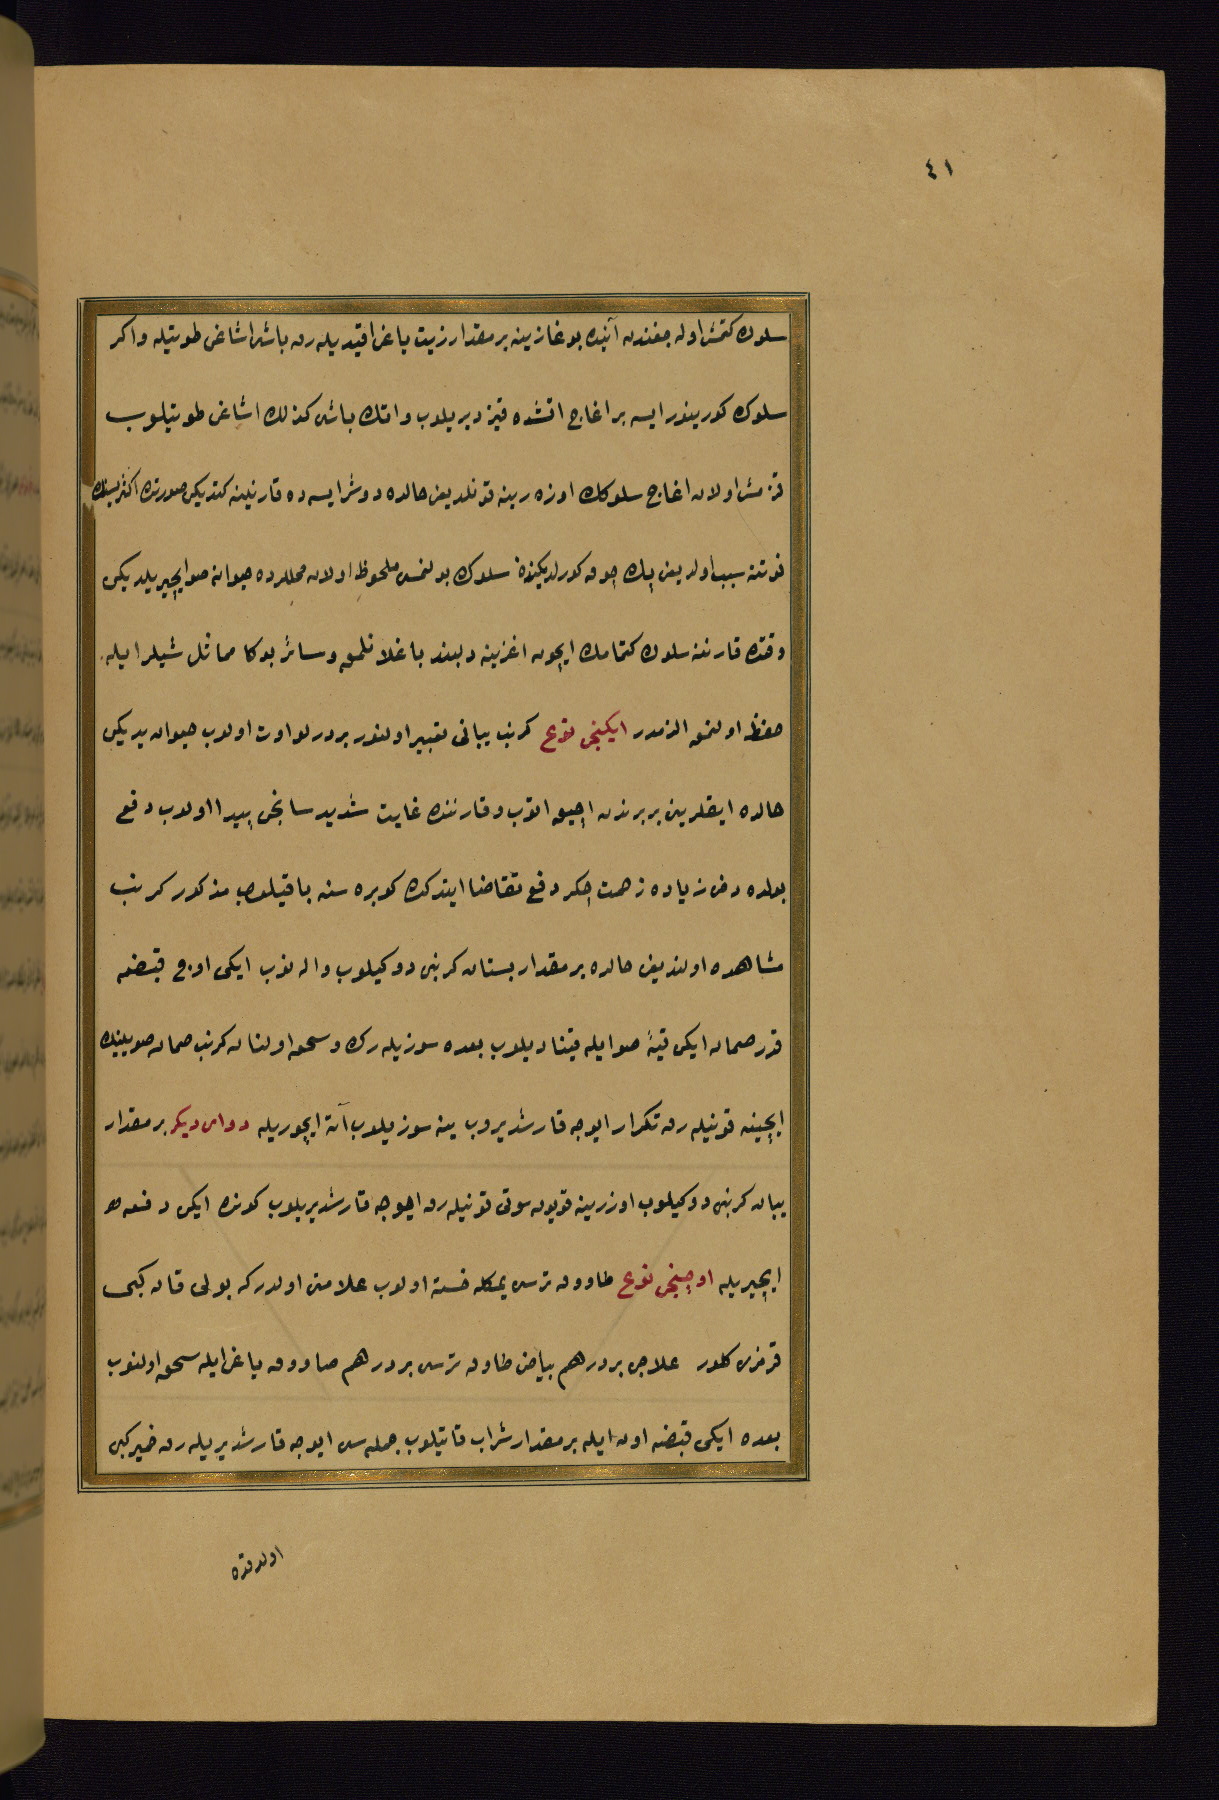 ٤١
سلوك كتمش اوله جغندن آتك بوغازينه بر مقدار زيت ياغى اقيديله رق باشى اشاغى طوتيله واكر
سلوك كورينور ايسه بر اغاج اتشده قيزديريلوب واتك باشى كذلك اشاغى طوتيلوب
قزمش اولان اغاج سلوكك اوزه رينه قونلديغى حالده دوشر ايسه ده قارنينه كتديكى صورتده اكثريسنك
فوتنه سبب اولديغى پك چوق كورلديكندن سلوك بولنمسى ملحوظ اولان محللرده حيوانه صو ايچيريلديكى
وقتده قارننه سلوك كتمامك ايچون اغزينه دلبند باغلانلمق وسائر بوكا مماثل شيلر ايله
حفظ اولنمق الزمدر ايكنجى نوع كرنب يبانى تعبير اولنور بر درلو اوت اولوب حيوان يديكى
حالده ايقلرينى بربرندن اچيق اتوب وقارننده غايت شديد سانجى پيدا اولوب دفع
بولده دخى زياده زحمت چكر دفع تقاضا ايتدكده كوبره سنه باقيلوب مذكور كرنب
مشاهده اولنديغى حالده بر مقدار بستان كرنبى دوكيلوب والنوب ايكى اوچ قبضه
قدر صمان ايكى قيه صو ايله قيناديلوب بعده سوزيله رك وسحق اولنان كرنب صمان صويينك
ايچينه قونيله رق تكرار ايوجه قارشديروب ينه سوزيلوب آته ايچوريله دواى ديكر بر مقدار
يبان كرنبى دوكيلوب اوزرينه قويون سوتى قونيله رق ايوجه قارشديريلوب كونده ايكى دفعه
ايچيريله اوچنجى نوع طاووق ترسى يمكله خسته اولوب علامتى اولدركه بولى قان كبى
قرمزى كلور علاجى بر درهم بياض طاوق ترسى بر درهم صاروق ياغى ايله سحق اولنوب
بعده ايكى قبضه اون ايله بر مقدار شراب قاتيلوب جمله سى ايوجه قارشديريله رق خمير كبى
اولدقده